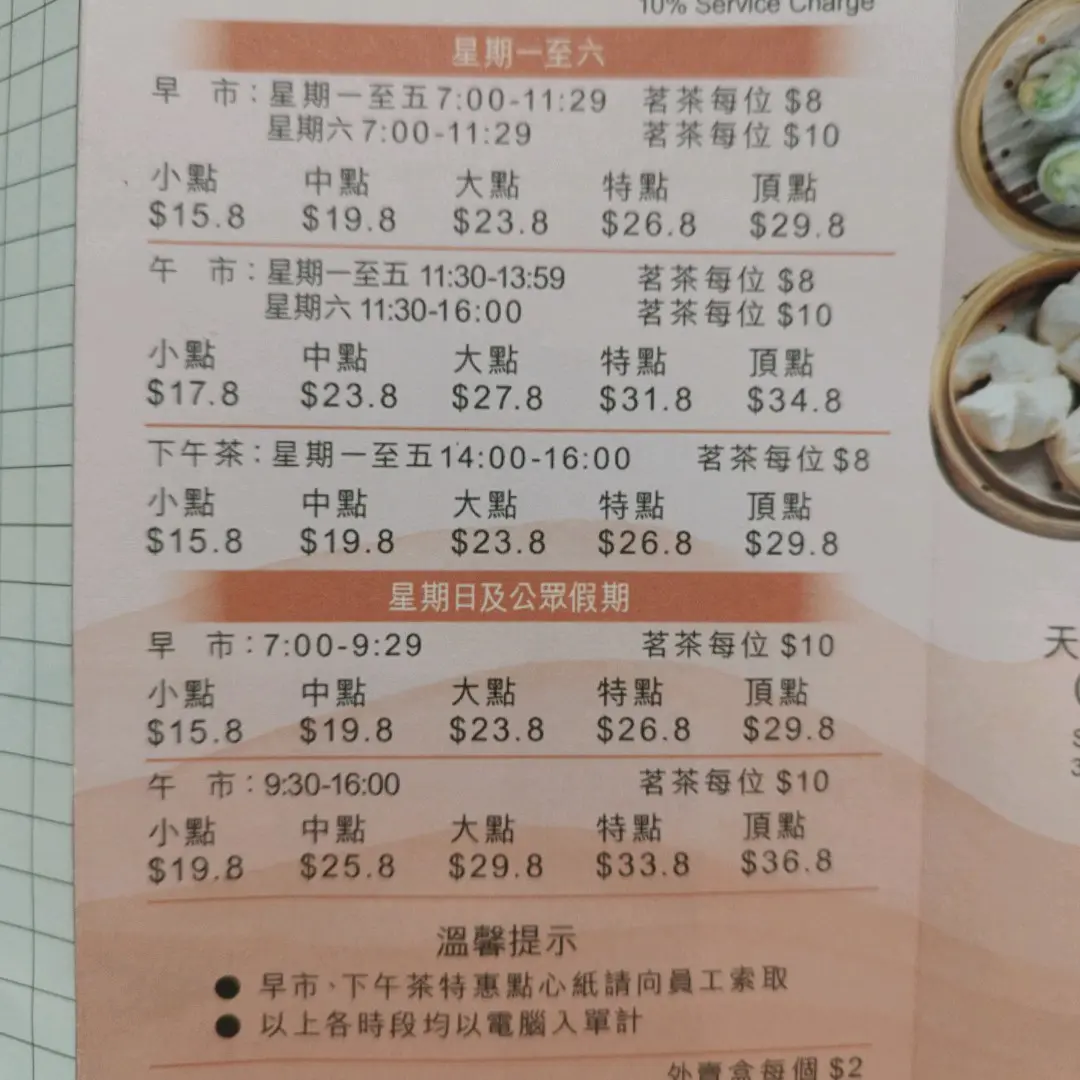 10% Service Charge
星期一至六
早 市：星期一至五7:00-11:29 茗茶每位 $8
星期六7:00-11:29 茗茶每位 $10
小點 中點 大點 特點 頂點
$15.8 $19.8 $23.8 $26.8 $29.8
午 市：星期一至五 11:30-13:59 茗茶每位 $8
星期六 11:30-16:00 茗茶每位 $10
小點 中點 大點 特點 頂點
$17.8 $23.8 $27.8 $31.8 $34.8
下午茶：星期一至五14:00-16:00 茗茶每位 $8
小點 中點 大點 特點 頂點
$15.8 $19.8 $23.8 $26.8 $29.8
星期日及公眾假期
早 市：7:00-9:29 茗茶每位 $10
小點 中點 大點 特點 頂點
$15.8 $19.8 $23.8 $26.8 $29.8
午 市：9:30-16:00 茗茶每位 $10
小點 中點 大點 特點 頂點
$19.8 $25.8 $29.8 $33.8 $36.8
溫馨提示
● 早市、下午茶特惠點心紙請向員工索取
● 以上各時段均以電腦入單計
外賣盒每個 $2
天